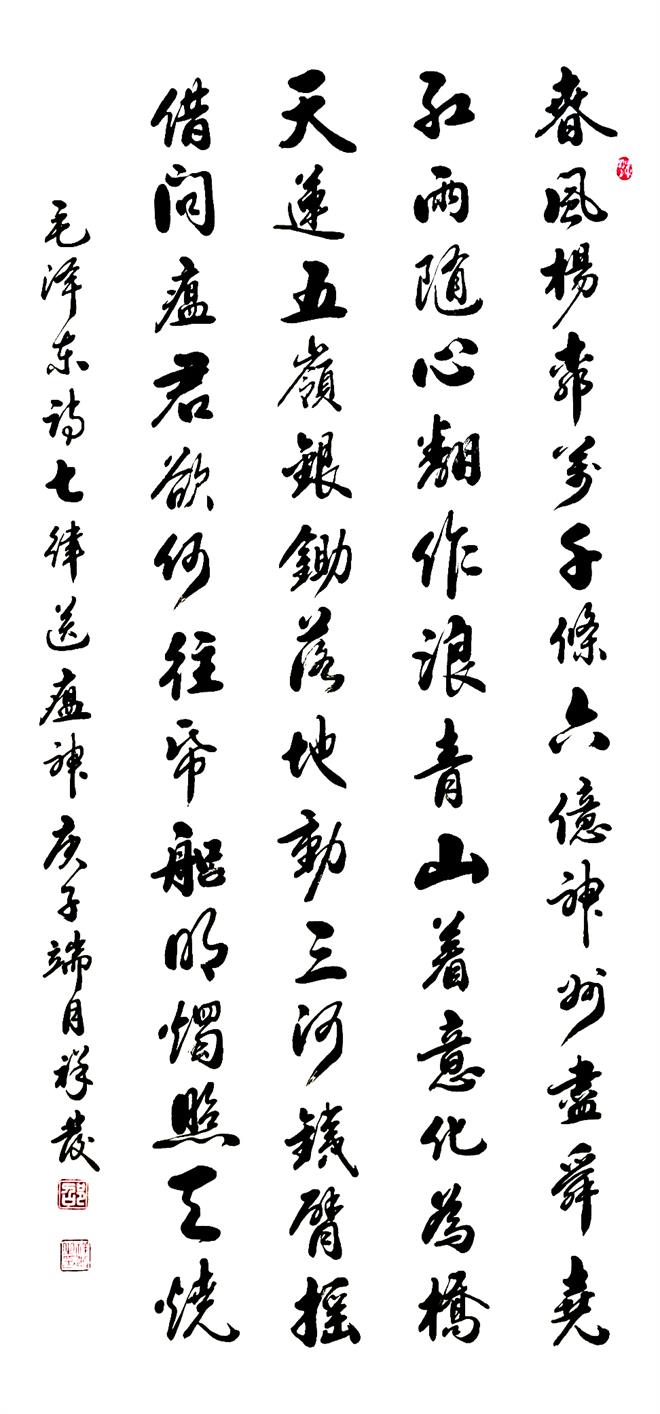 春風楊柳萬千條六億神州盡舜堯
紅雨随心翻作浪青山着意化為橋
天連五嶺銀鋤落地動三河鐵臂摇
借問瘟君欲何往帋船明燭照天燒
毛泽东诗七律送瘟神庚子端月祥發